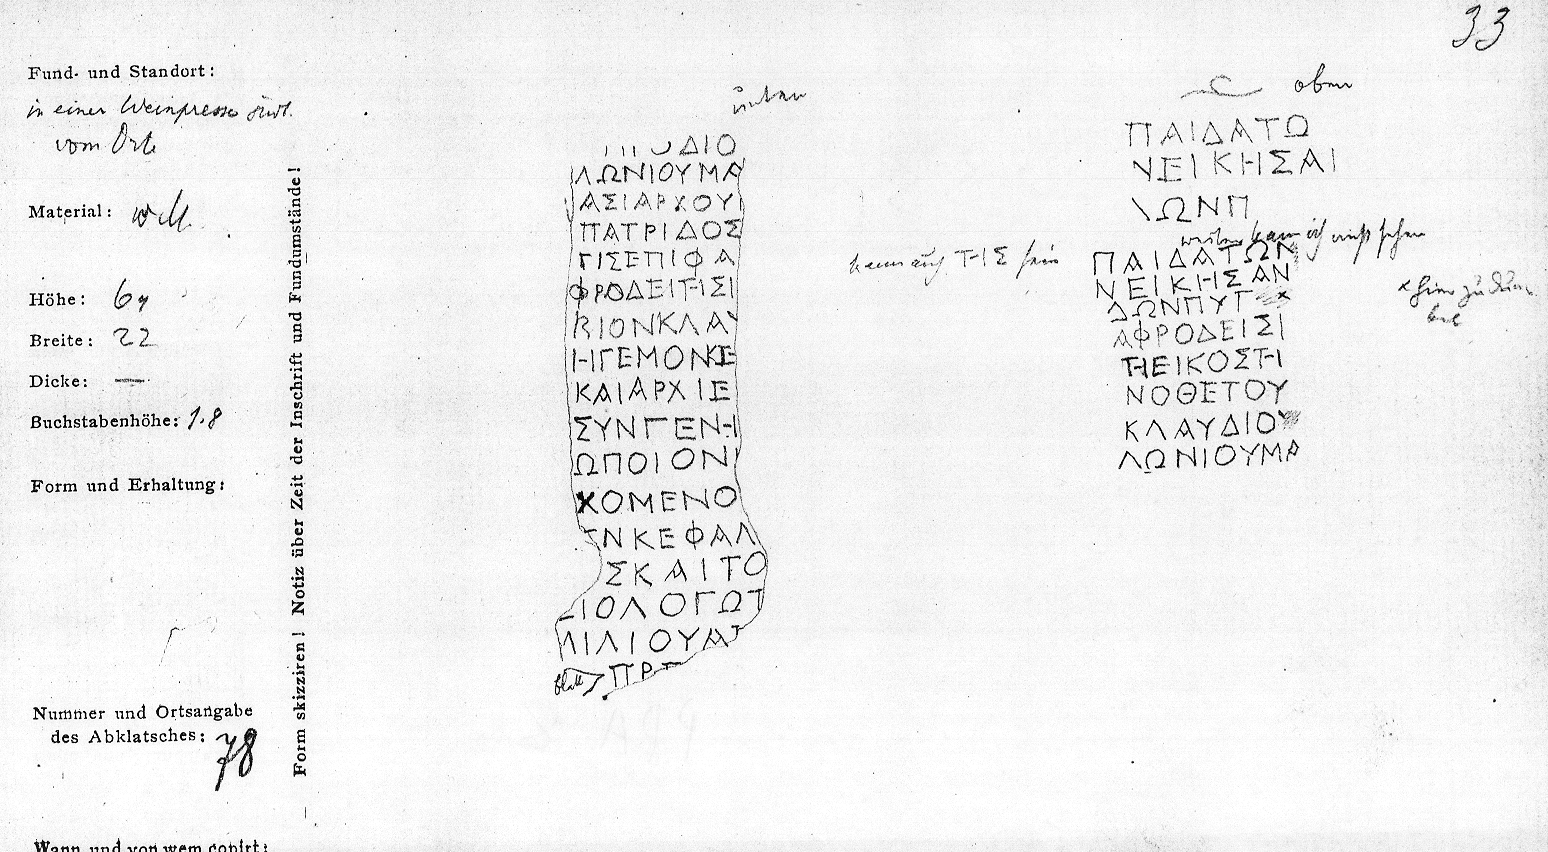 33
Fund- und Standort:
in einer Weinpresse südl.
vom Orte
Material:
Höhe: 69
Breite: 22
Dicke: —
Buchstabenhöhe: 1.8
Form und Erhaltung:
Nummer und Ortsangabe
des Abklatsches: 78
Wann und von wem copirt:
Form skizziren! Notiz über Zeit der Inschrift und Fundumstände!
unten
ΔΙΟ
ΛΩΝΙΟΥΜΑ
ΑΣΙΑΡΧΟΥ
ΠΑΤΡΙΔΟΣ
ΓΙΣΕΠΙΦΑ
ΦΡΟΔΕΙΤΗΣΙ
ΒΙΟΝΚΛΑΥ
ΗΓΕΜΟΝΚΕ
ΚΑΙΑΡΧΙΕ
ΣΥΝΓΕΝΗ
ΩΠΟΙΟΝ
ΧΟΜΕΝΟ
ΝΚΕΦΑΛ
ΣΚΑΙΤΟ
ΙΟΛΟΓΩΤ
ΛΙΛΙΟΥΑΤ
ΠΡ
kann auch ΤΗΣ sein
oben
ΠΑΙΔΑΤΩ
ΝΕΙΚΗΣΑΙ
\ΩΝΠ
weiter kann ich nicht sehen
ΠΑΙΔΑΤΩΝ
ΝΕΙΚΗΣΑΝ
ΔΩΝΠΥΓ x
ΑΦΡΟΔΕΙΣΙ
ΤΗΕΙΚΟΣΤΗ
ΝΟΘΕΤΟΥ
ΚΛΑΥΔΙΟΥ
ΛΩΝΙΟΥΜΑ
x hier zu dun-
kel